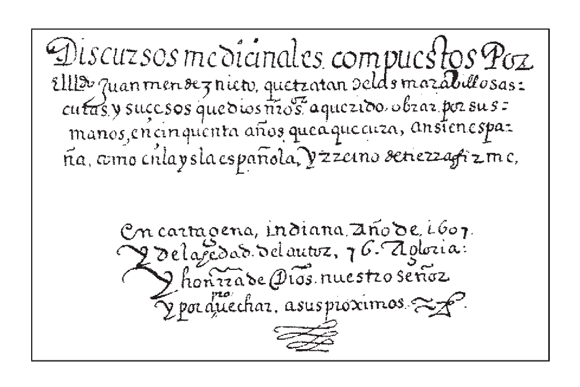 Discursos medicinales. compuestos Por
Elllº Juan mendez nieto, que tratan de las marabillosas=
curas y sucesos que dios nrºs. a querido. obrar por sus=
manos, en cinquenta años que a que cura, ansi en espa=
ña, como en la ysla española, Y rreino de tierra firme,
En cartagena, indiana. Año de. 1607.
Y de la edad. del autor, 76. A gloria:
Y honrra de Dios. nuestro Señor
pro
Y por aquechar, a sus proximos.